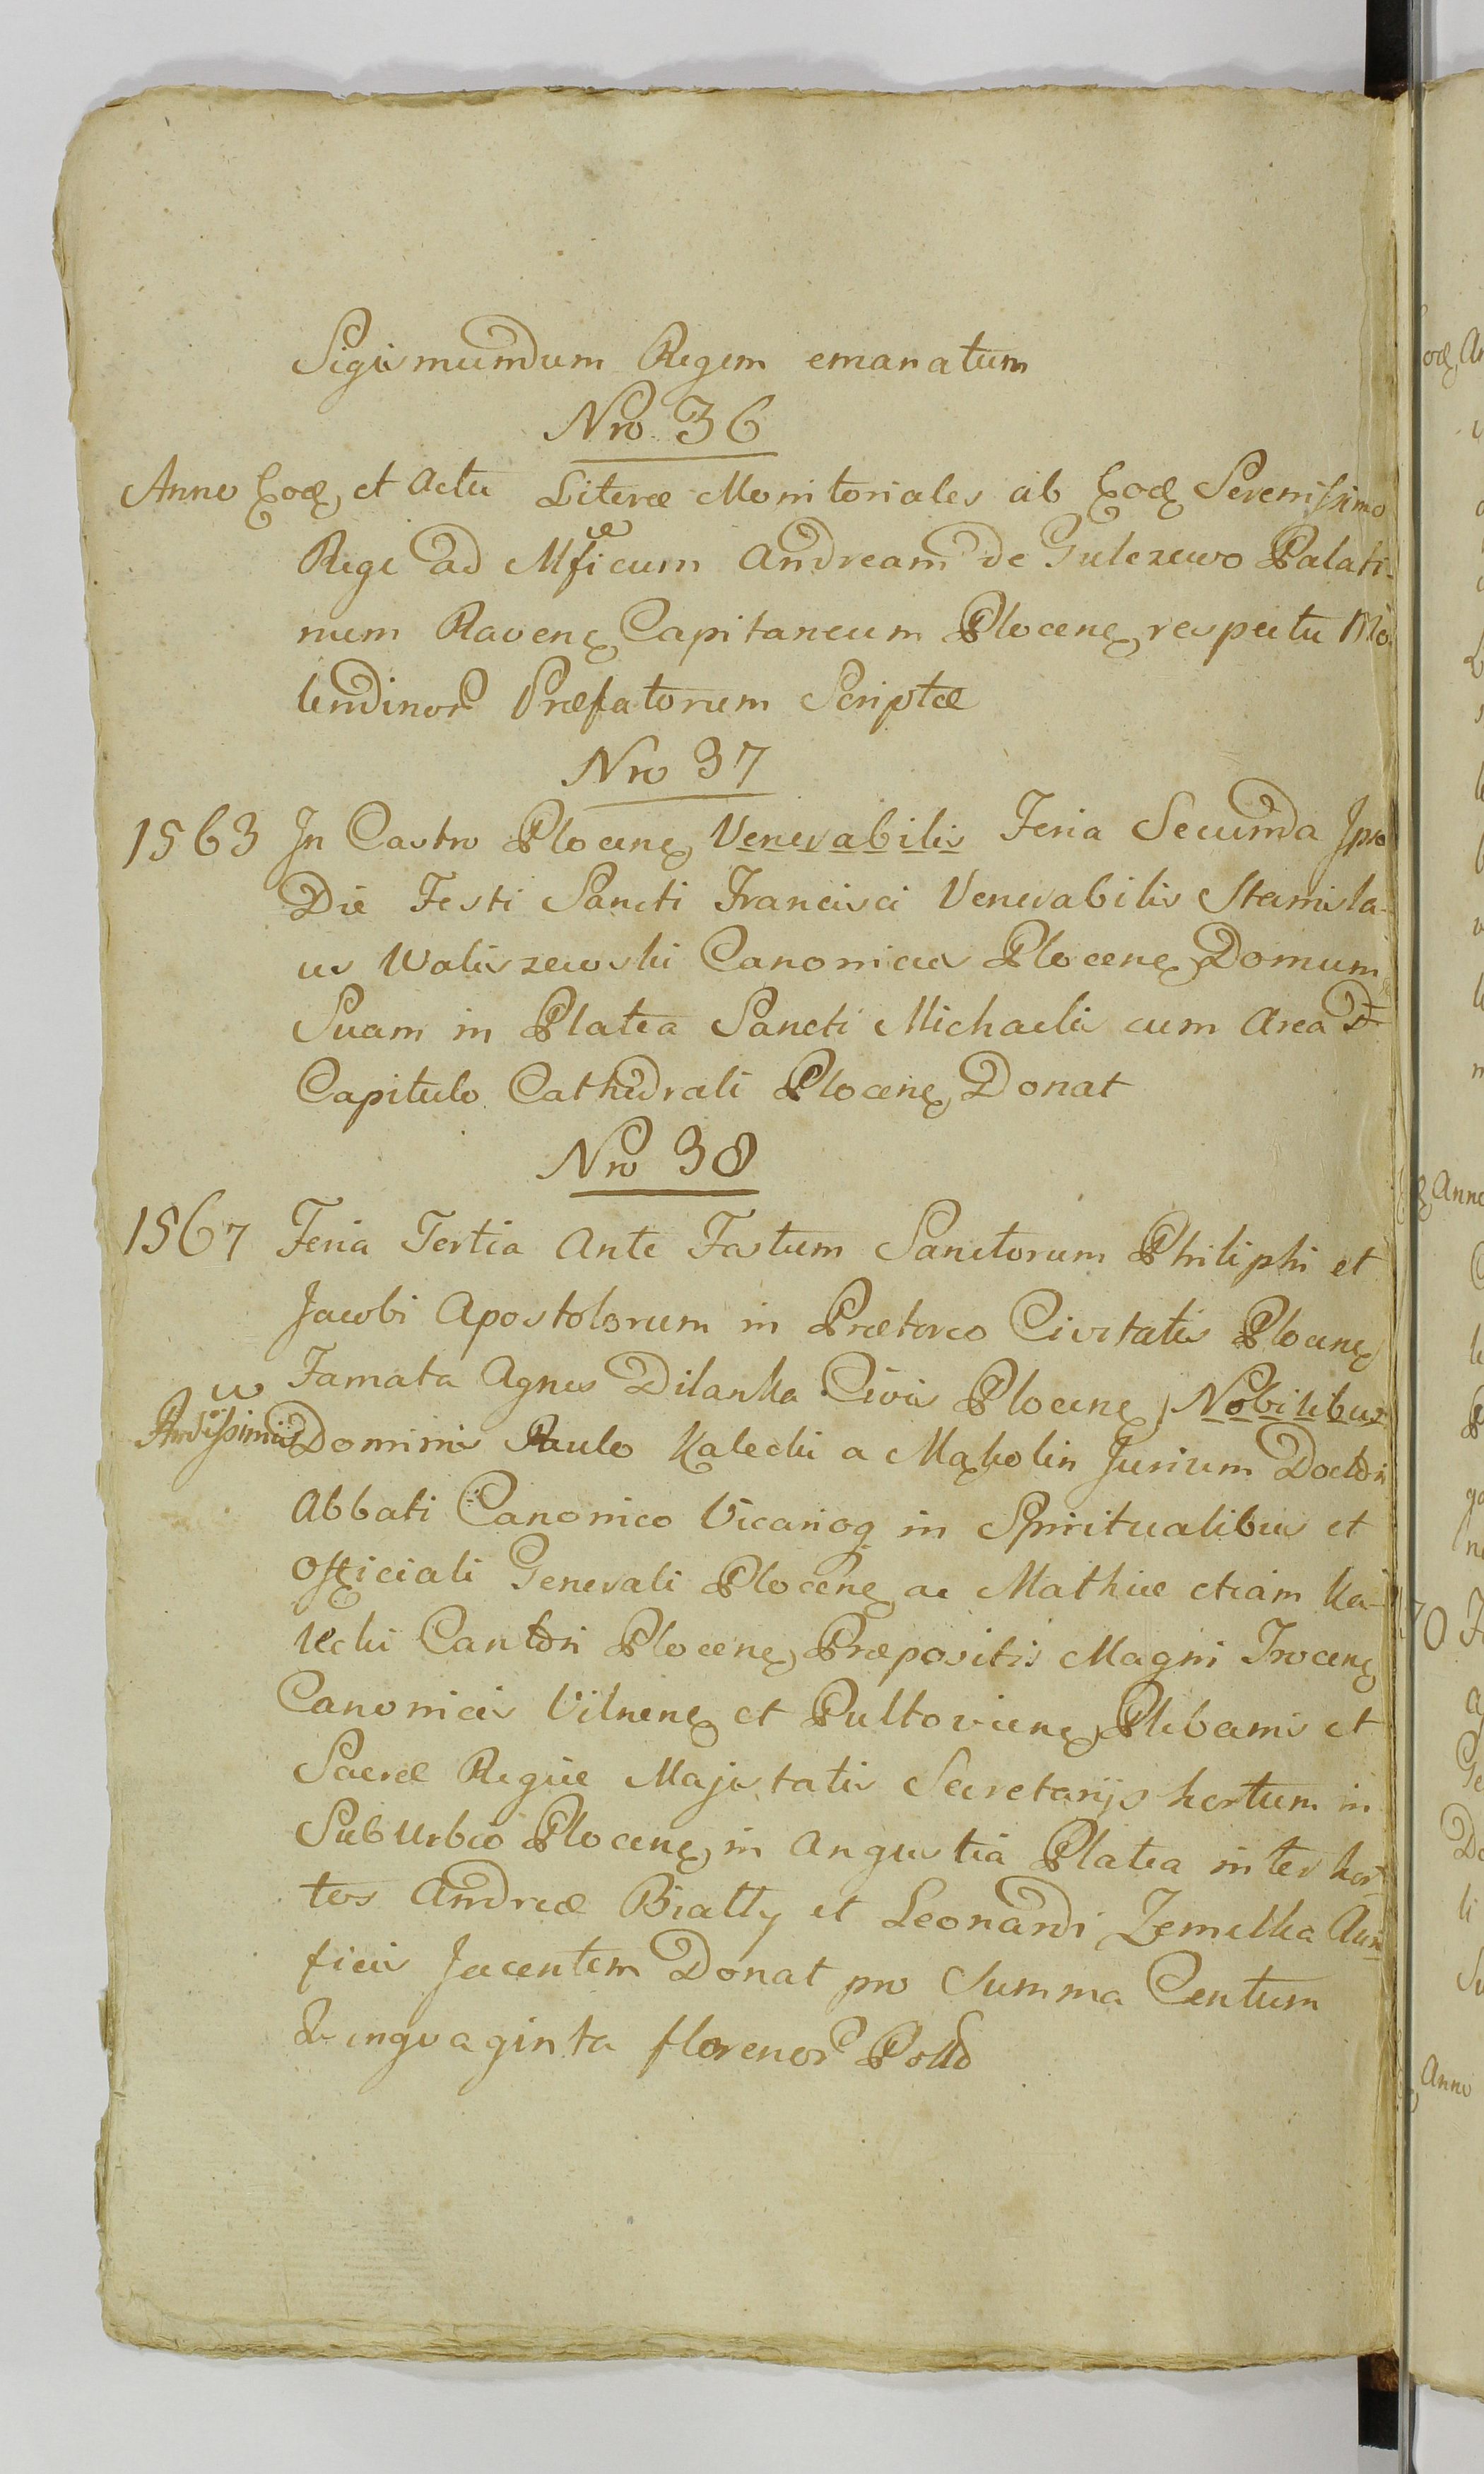 Sigismundum Regem emanatum
Nro 36
Anno Eod, et Actu Literæ Monitoriales ab Eod, Serenissimo
Rege ad Mficum Andream de Gulczewo Palati-
num Ravene, Capitaneum Plocene, respectu Mo-
lendinor Præfatorum Scriptæ
Nro 37
1563 In Castro Plocene, Venerabilis Feria Secunda Ipso
Die Festi Sancti Francisci Venerabilis Stanisla-
us Waliszewski Canonicus Plocene, Domum
Suam in Platea Sancti Michaelis cum Area
Capitulo Cathedrali Plocene, Donat
Nro 38
1567 Feria Tertia Ante Fastum Sanctorum Philiphi et
Jacobi Apostolorum in Prætoreo Civitatis Plocene,
Famata Agnes Dilanka Civis Plocene, Nobilibus
Dominis Paulo Kalecki a Makolin Jurium Doctori
Abbati Canonico Vicarioq in Spiritualibus et
Officiali Generali Plocene, ac Mathiæ etiam Ka-
lecki Cantori Plocene, Præpositis Magni Trocene,
Canonicis Vilnene, et Pultoviene, Plebanis et
Sacræ Regiæ Majestatis Secretarijs hortum in
SubUrbio Plocene, in Angustia Platea inter hor-
tos Andreæ Bialły et Leonardi Zemełka Auri
ficis Jacentem Donat pro Summa Centum
Quinquaginta florenor Polld